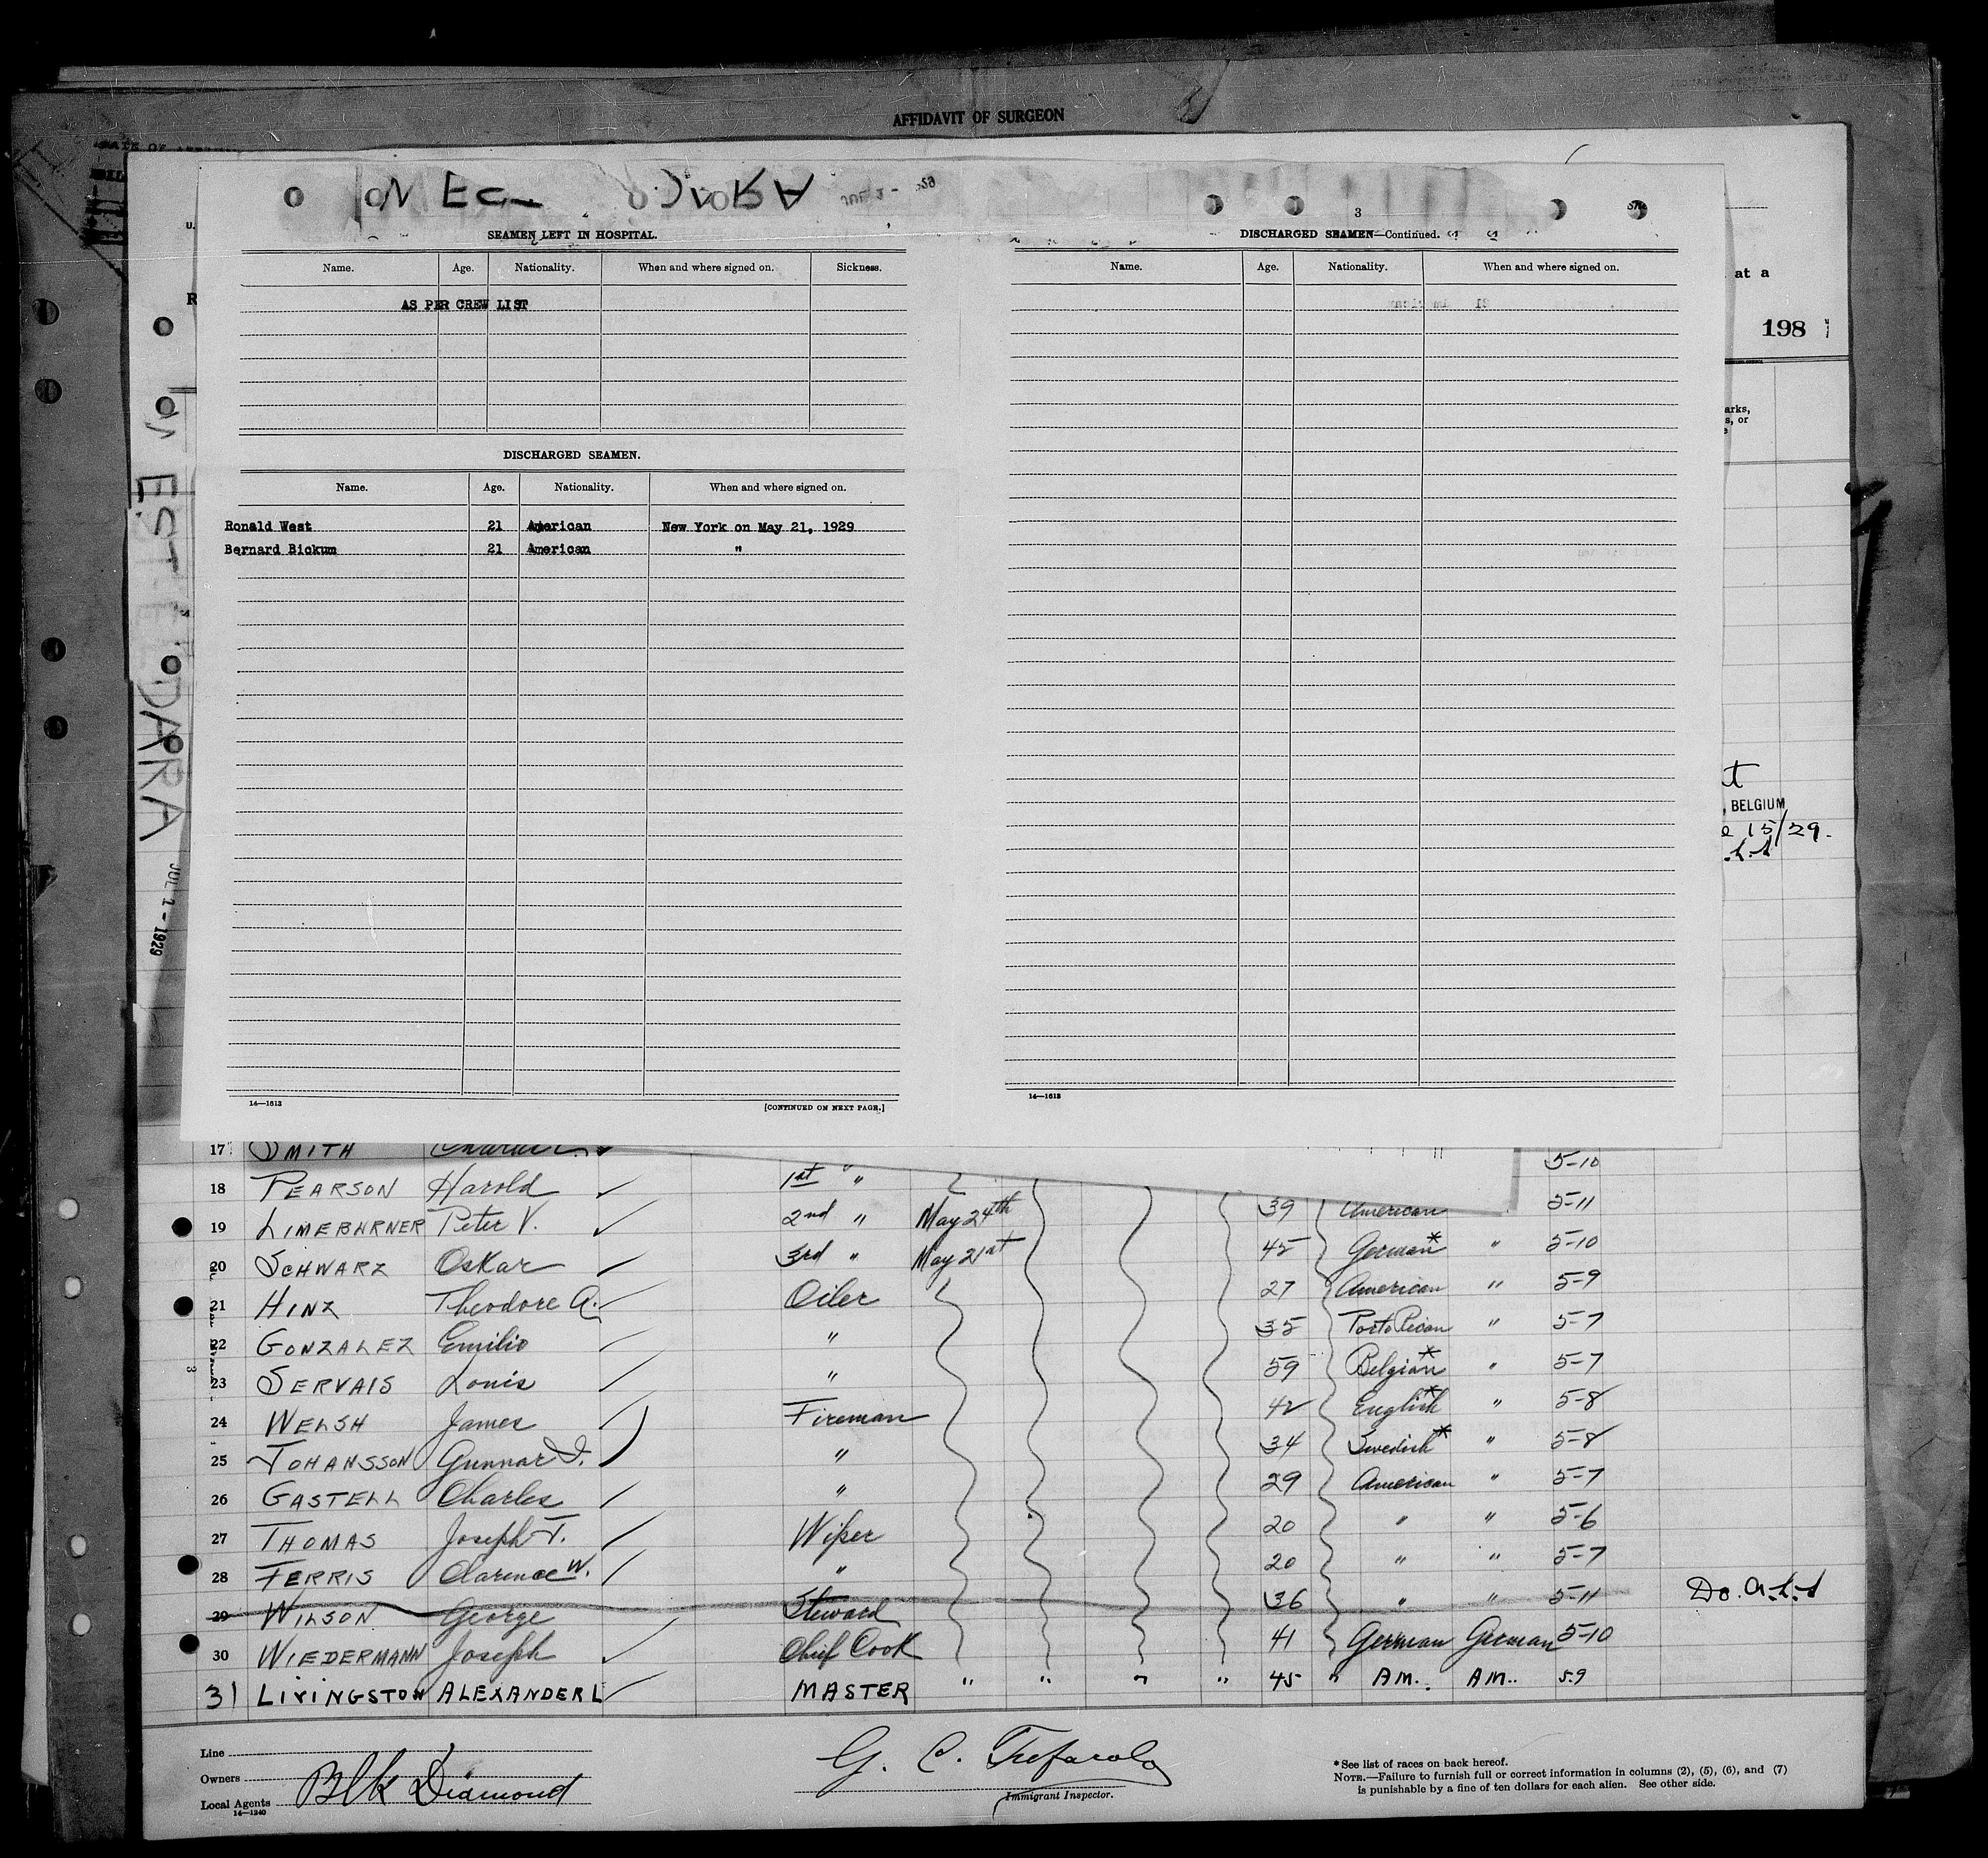 AFFIDAVIT OF SURGEON
3
SEAMEN LEFT IN HOSPITAL.
Name. Age. Nationality. When and where signed on. Sickness.
AS PER CREW LIST
DISCHARGED SEAMEN.
Name. Age. Nationality. When and where signed on.
Ronald West 21 American New York on May 21, 1929
Bernard Bickum 21 American "
14—1613 [CONTINUED ON NEXT PAGE.]
DISCHARGED SEAMEN—Continued.
Name. Age. Nationality. When and where signed on.
14—1613
at a
198
arks,
s, or
, BELGIUM
15/29.
JUL 1 - 1929
17 SMITH 5-10
18 PEARSON Harold 1st "
19 LIMEBURNER Peter V. 2nd " May 24th 39 American 5-11
20 SCHWARZ Oskar 3rd " May 21st 45 German* " 5-10
21 HINZ Theodore A. Oiler 27 American " 5-9
22 GONZALEZ Emilio " 35 Porto Rican " 5-7
23 SERVAIS Louis " 59 Belgian* " 5-7
24 WELSH James Fireman 42 English* " 5-8
25 JOHANSSON Gunnar I. " 34 Swedish* " 5-8
26 GASTELL Charles " 29 American " 5-7
27 THOMAS Joseph T. Wiper 20 " " 5-6
28 FERRIS Clarence W. " 20 " " 5-7
29 WILSON George Steward 36 " " 5-11 Do.
30 WIEDERMANN Joseph Chief Cook 41 German German 5-10
31 LIVINGSTON ALEXANDER L MASTER " " " " 45 " AM. AM. 5-9
Line
Owners
Local Agents Blk Diamond
14—1240
G. C.
Immigrant Inspector.
* See list of races on back hereof.
NOTE.—Failure to furnish full or correct information in columns (2), (5), (6), and (7)
is punishable by a fine of ten dollars for each alien. See other side.